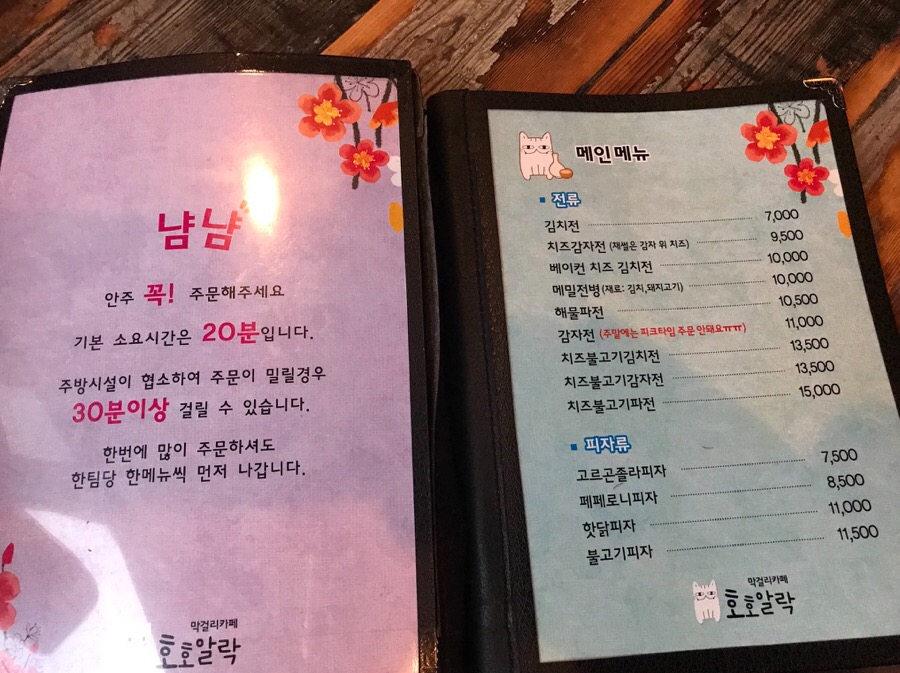 냠냠
안주 꼭! 주문해주세요
기본 소요시간은 20분입니다.
주방시설이 협소하여 주문이 밀릴경우
30분이상 걸릴 수 있습니다.
한번에 많이 주문하셔도
한팀당 한메뉴씩 먼저 나갑니다.
막걸리카페
호호알락
메인메뉴
전류
김치전 7,000
치즈감자전 (채썰은 감자 위 치즈) 9,500
베이컨 치즈 김치전 10,000
메밀전병(재료: 김치,돼지고기) 10,000
해물파전 10,500
감자전 (주말에는 피크타임 주문 안돼요ㅠㅠ) 11,000
치즈불고기김치전 13,500
치즈불고기감자전 13,500
치즈불고기파전 15,000
피자류
고르곤졸라피자 7,500
페페로니피자 8,500
핫닭피자 11,000
불고기피자 11,500
막걸리카페
호호알락